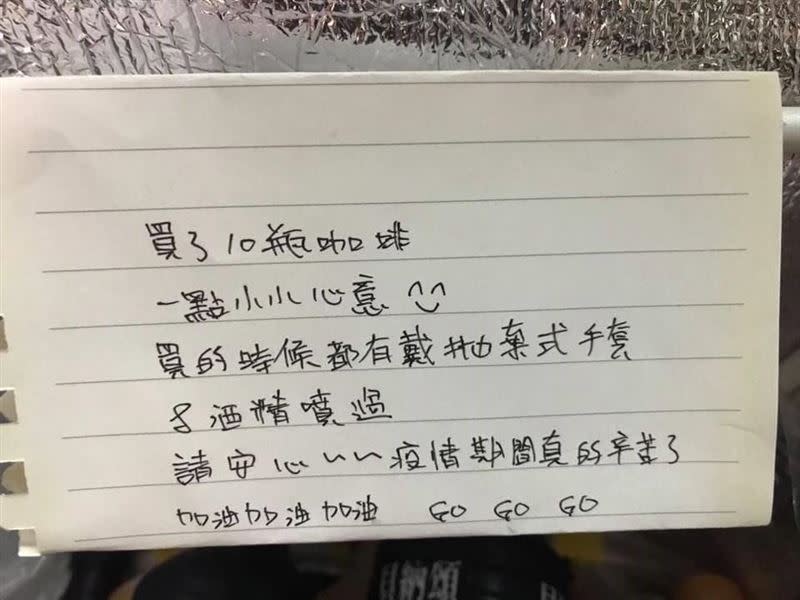 買了10瓶咖啡
一點小小心意 ^^
買的時候都有戴拋棄式手套
&酒精噴過
請安心~~疫情期間真的辛苦了
加油加油加油 GO GO GO
貝納頌